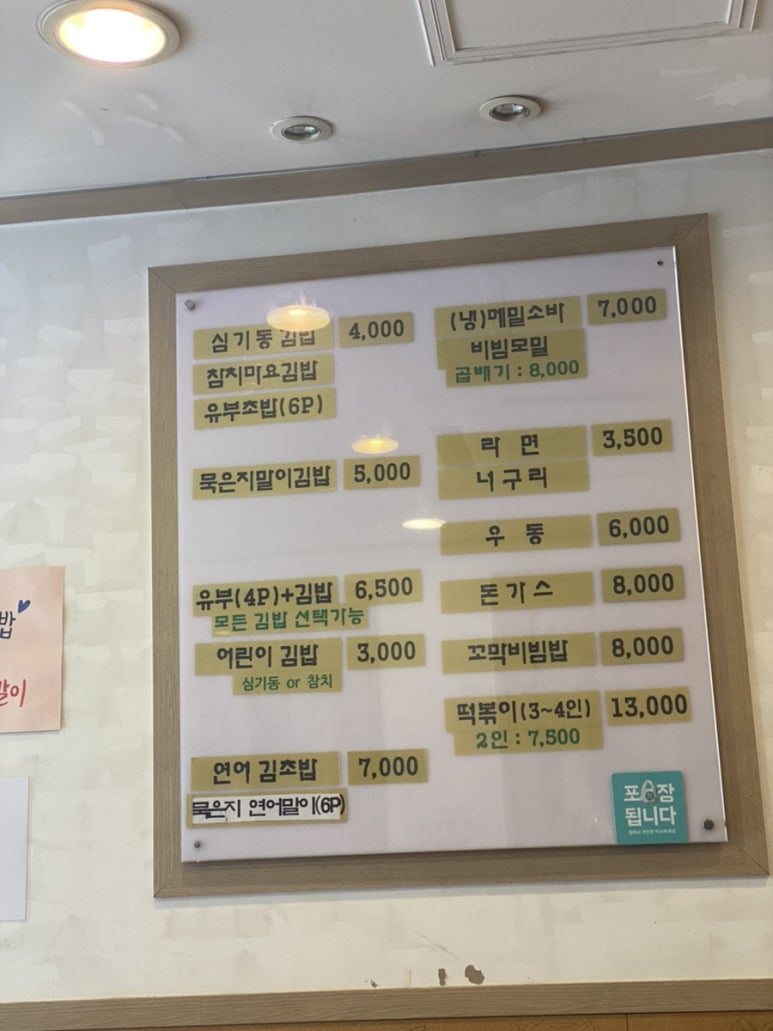 심기동 김밥 4,000
참치마요김밥
유부초밥(6P)
묵은지말이김밥 5,000
유부(4P)+김밥 6,500
모든 김밥 선택가능
어린이 김밥 3,000
심기동 or 참치
연어 김초밥 7,000
묵은지 연어말이(6P)
(냉)메밀소바 7,000
비빔모밀
곱배기 : 8,000
라 면 3,500
너구리
우 동 6,000
돈가스 8,000
꼬막비빔밥 8,000
떡볶이(3~4인) 13,000
2인 : 7,500
포장
됩니다
밥
말이